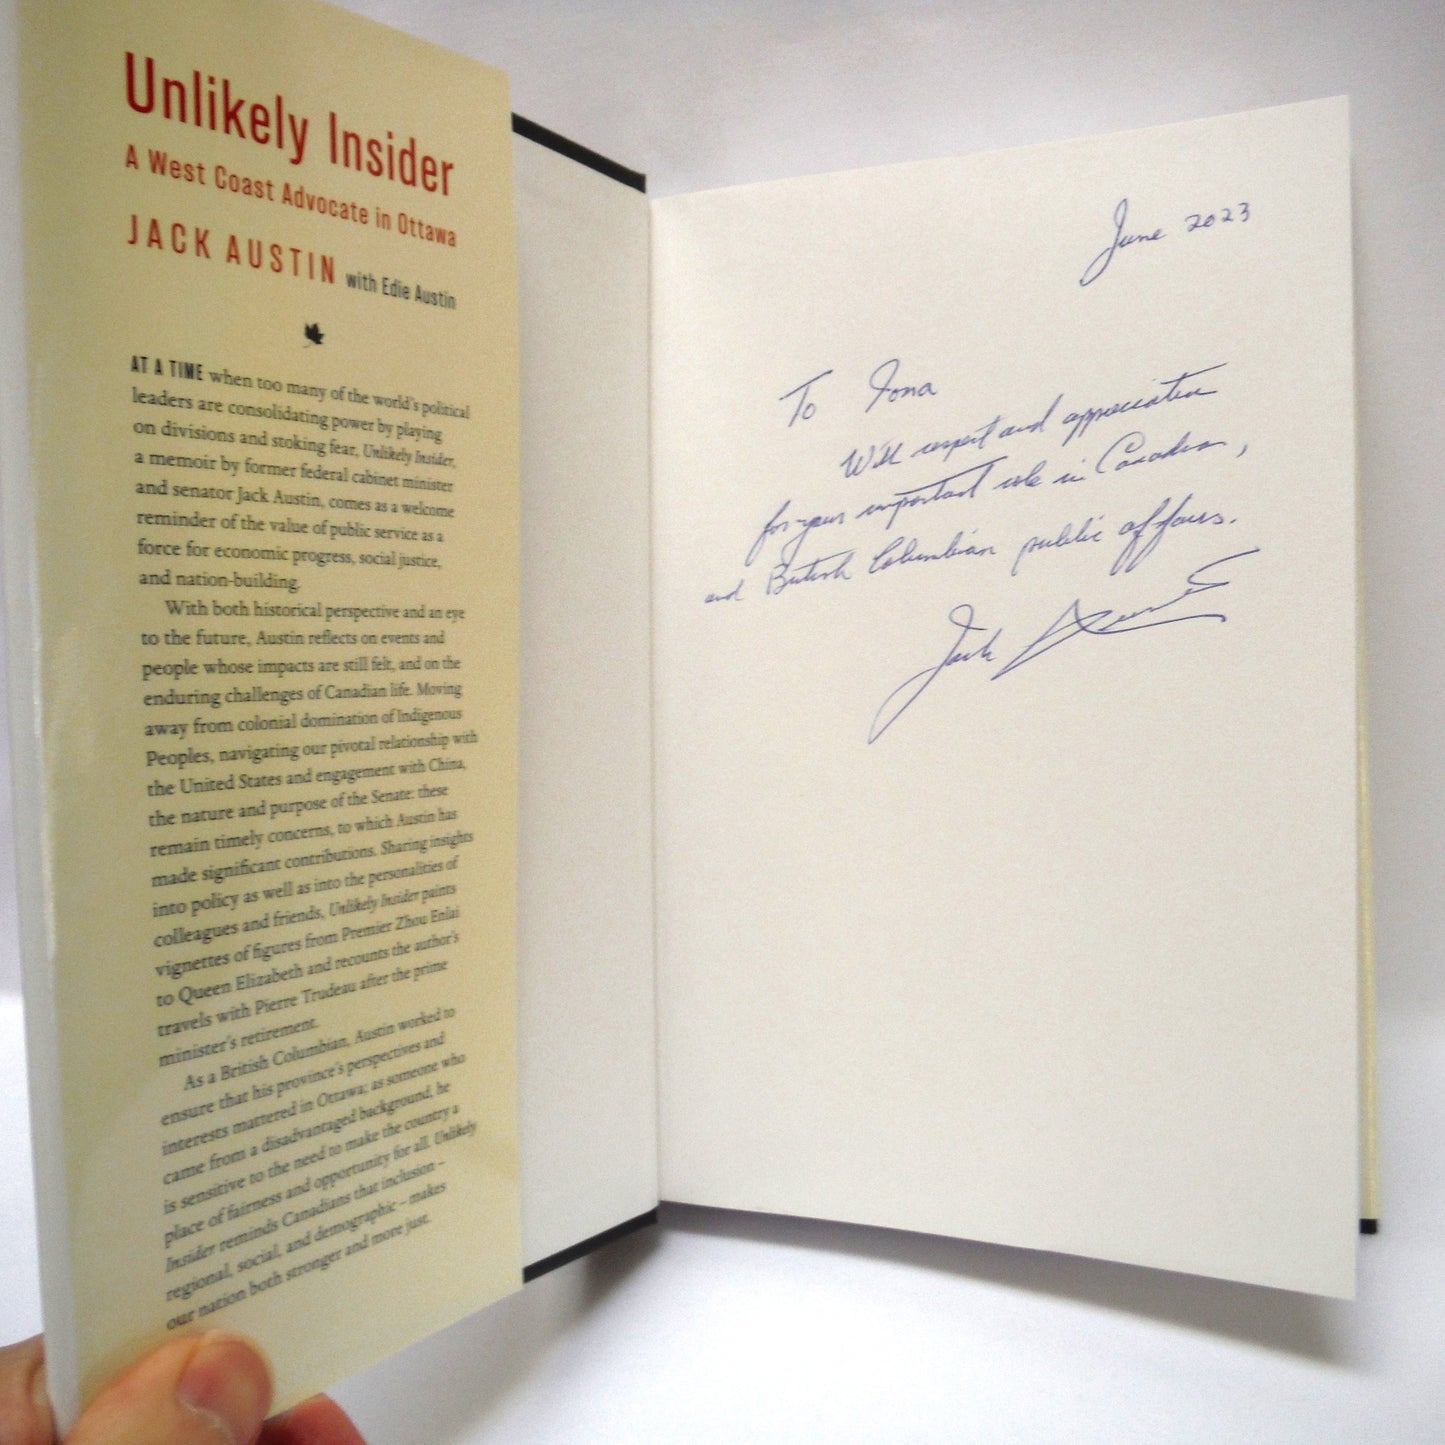 Unlikely Insider
A West Coast Advocate in Ottawa
JACK AUSTIN with Edie Austin
AT A TIME when too many of the world's political
leaders are consolidating power by playing
on divisions and stoking fear, Unlikely Insider,
a memoir by former federal cabinet minister
and senator Jack Austin, comes as a welcome
reminder of the value of public service as a
force for economic progress, social justice,
and nation-building.
With both historical perspective and an eye
to the future, Austin reflects on events and
people whose impacts are still felt, and on the
enduring challenges of Canadian life. Moving
away from colonial domination of Indigenous
Peoples, navigating our pivotal relationship with
the United States and engagement with China,
the nature and purpose of the Senate: these
remain timely concerns, to which Austin has
made significant contributions. Sharing insights
into policy as well as into the personalities of
colleagues and friends, Unlikely Insider paints
vignettes of figures from Premier Zhou Enlai
to Queen Elizabeth and recounts the author's
travels with Pierre Trudeau after the prime
minister's retirement.
As a British Columbian, Austin worked to
ensure that his province's perspectives and
interests mattered in Ottawa; as someone who
came from a disadvantaged background, he
is sensitive to the need to make the country a
place of fairness and opportunity for all. Unlikely
Insider reminds Canadians that inclusion –
regional, social, and demographic – makes
our nation both stronger and more just.
June 2023
To Iona
With respect and appreciation
for your important role in Canadian,
and British Columbian public affairs.
Jack Austin